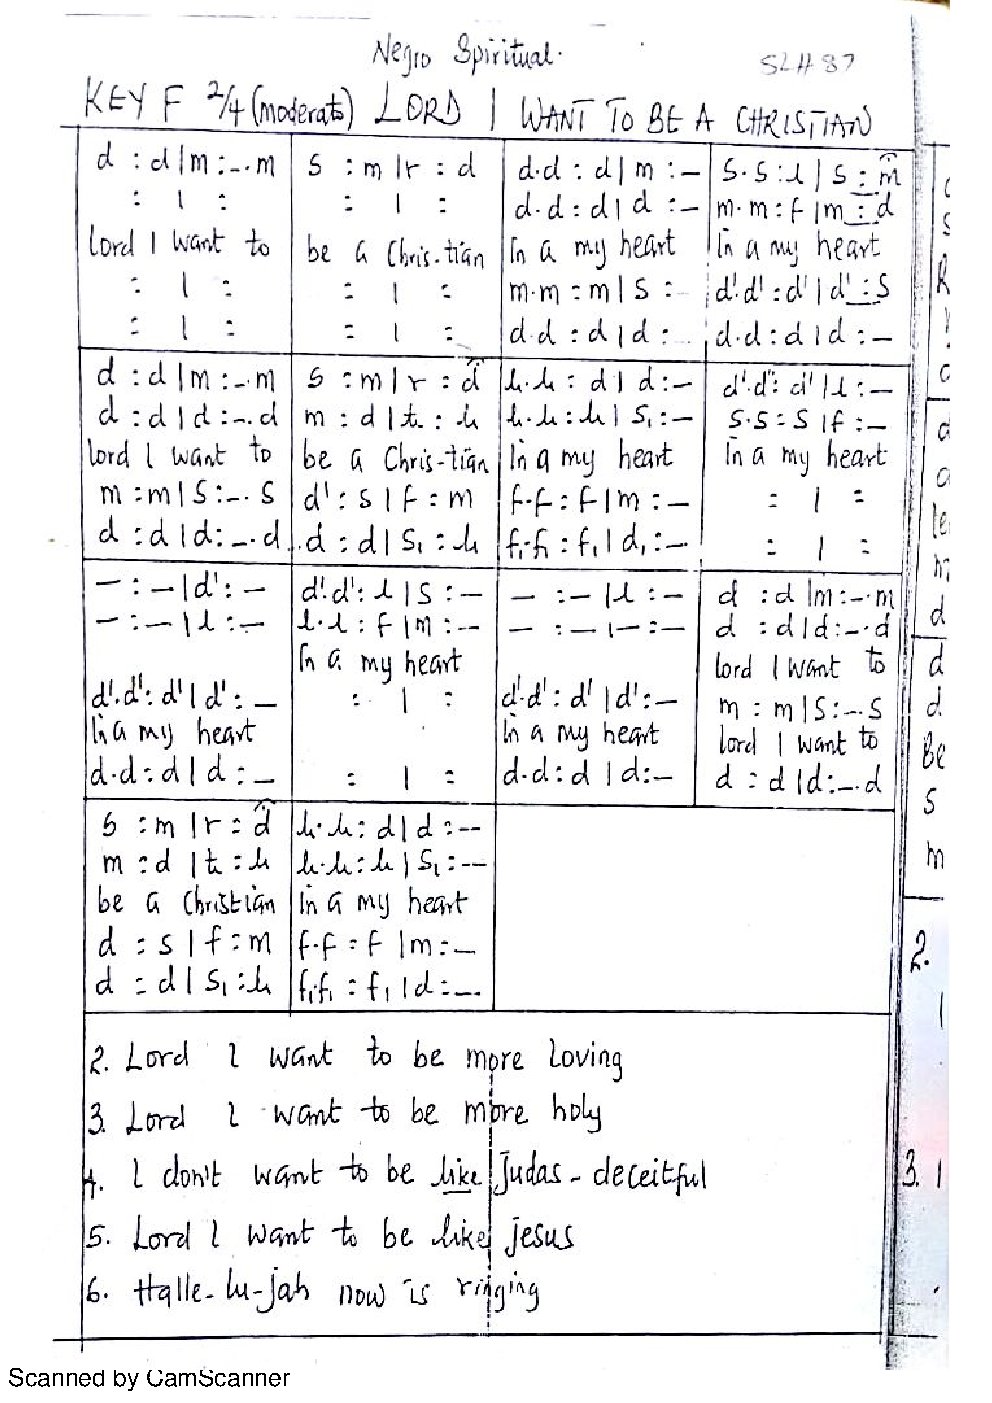 Negro Spiritual.
SLH 87
KEY F 2/4 (moderato) LORD I WANT TO BE A CHRISTIAN
d : d | m : -. m
: | :
lord I want to
: | :
: | :
s : m | r : d
: | :
be a Chris-tian
: | :
: | :
d.d : d | m : –
d.d : d | d : –
In a my heart
m.m : m | s : –
d.d : d | d : –
s.s : l | s : m
m.m : f | m : d
In a my heart
d'.d' : d' | d' : s
d.d : d | d : –
d : d | m : -. m
d : d | d : -. d
lord I want to
m : m | s : -. s
d : d | d : -. d
s : m | r : d
m : d | t₁ : l₁
be a Chris-tian
d' : s | f : m
d : d | s₁ : l₁
l₁.l₁ : d | d : –
l₁.l₁ : l₁ | s₁ : –
In a my heart
f.f : f | m : –
f₁.f₁ : f₁ | d₁ : –
d'.d' : d' | l : –
s.s : s | f : –
In a my heart
: | :
: | :
– : – | d' : –
– : – | l : –
d'.d' : d' | d' : –
In a my heart
d.d : d | d : –
d'.d' : l | s : –
l.l : f | m : –
In a my heart
: | :
: | :
– : – | l : –
– : – | – : –
d'.d' : d' | d' : –
In a my heart
d.d : d | d : –
d : d | m : -. m
d : d | d : -. d
lord I want to
m : m | s : -. s
lord I want to
d : d | d : -. d
s : m | r : d
m : d | t₁ : l₁
be a Christian
d : s | f : m
d : d | s₁ : l₁
l₁.l₁ : d | d : –
l₁.l₁ : l₁ | s₁ : –
In a my heart
f.f : f | m : –
f₁.f₁ : f₁ | d : –
2. Lord I want to be more loving
3. Lord I want to be more holy
4. I don't want to be like Judas - deceitful
5. Lord I want to be like jesus
6. Halle-lu-jah now is ringing
2.
3. I
Scanned by CamScanner